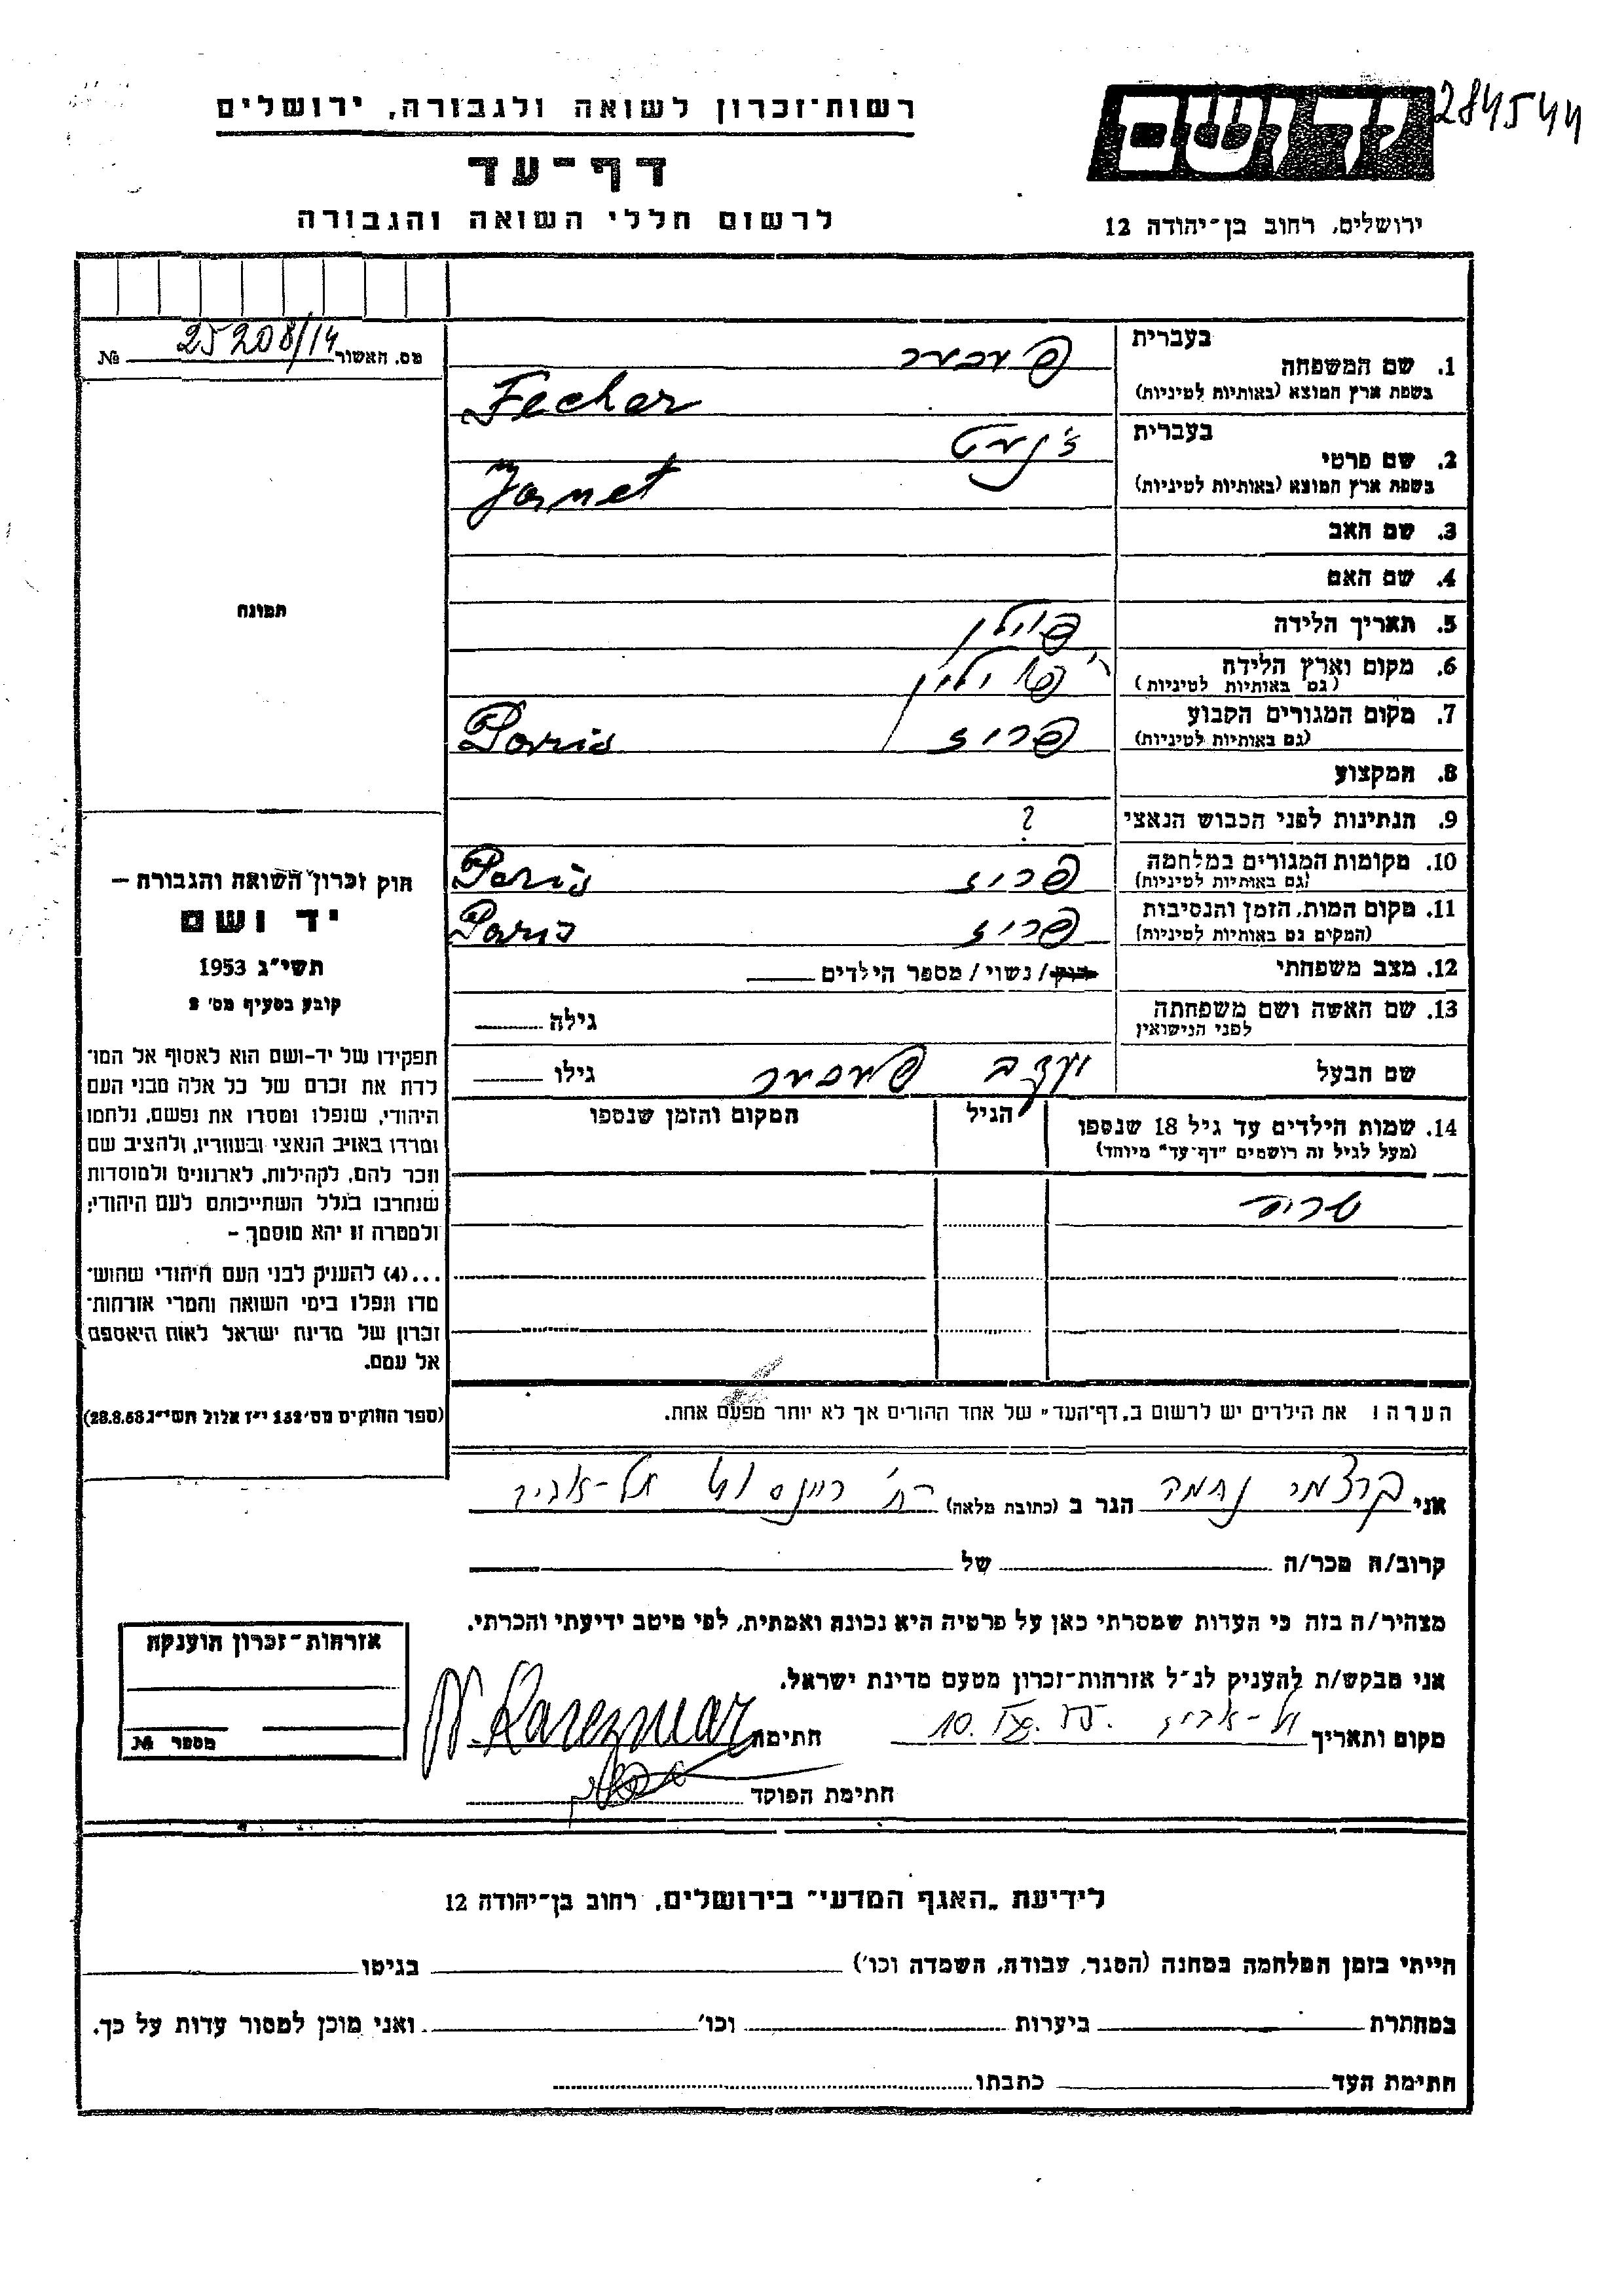 רשות-זכרון לשואה ולגבורה, ירושלים
284544
דף-עד
לרשום חללי השואה והגבורה
ידושם
ירושלים, רחוב בן-יהודה 12
מס. האשור 25208/14 №
בעברית
1. שם המשפחה
בשפת ארץ המוצא (באותיות לטיניות) Fecher
בעברית ז'נט
2. שם פרטי
בשפת ארץ המוצא (באותיות לטיניות) Janet
3. שם האב
4. שם האם
5. תאריך הלידה פולין
6. מקום וארץ הלידה
(גם באותיות לטיניות)
7. מקום המגורים הקבוע פריז Paris
(גם באותיות לטיניות)
8. המקצוע
9. הנתינות לפני הכבוש הנאצי ?
10. מקומות המגורים במלחמה פריז Paris
(גם באותיות לטיניות)
11. מקום המות, הזמן והנסיבות פריז Paris
(המקום גם באותיות לטיניות)
12. מצב משפחתי רווק/נשוי/ מספר הילדים
13. שם האשה ושם משפחתה גילה
לפני הנישואין
שם הבעל גילו
14. שמות הילדים עד גיל 18 שנספו הגיל המקום והזמן שנספו
(מעל לגיל זה רושמים "דף-עד" מיוחד)
הערה! את הילדים יש לרשום ב„דף-העד" של אחד ההורים אך לא יותר מפעם אחת.
תמונה
חוק זכרון השואה והגבורה —
יד ושם
תשי"ג 1953
קובע בסעיף מס' 2
תפקידו של יד-ושם הוא לאסוף אל המו־
לדת את זכרם של כל אלה מבני העם
היהודי, שנפלו ומסרו את נפשם, נלחמו
ומרדו באויב הנאצי ובעוזריו, ולהציב שם
וזכר להם, לקהילות, לארגונים ולמוסדות
שנחרבו בגלל השתייכותם לעם היהודי;
ולמטרה זו יהא מוסמך –
...(4) להעניק לבני העם היהודי שהוש־
מדו ונפלו בימי השואה והמרי אזרחות־
זכרון של מדינת ישראל לאות היאספם
אל עמם.
(ספר החוקים מס' 132 י"ז אלול תשי"ג 28.8.53)
אני נחמה הגר ב (כתובת מלאה) רח' תל-אביב
קרוב/ה מכר/ה של
מצהיר/ה בזה כי העדות שמסרתי כאן על פרטיה היא נכונה ואמתית, לפי מיטב ידיעתי והכרתי.
אני מבקש/ת להעניק לנ"ל אזרחות-זכרון מטעם מדינת ישראל.
מקום ותאריך תל-אביב חתימה
חתימת הפוקד
אזרחות-זכרון הוענקה
מספר №
לידיעת „האגף המדעי" בירושלים, רחוב בן-יהודה 12
הייתי בזמן המלחמה במחנה (הסגר, עבודה, השמדה וכו') בגיטו
במחתרת ביערות וכו' ואני מוכן למסור עדות על כך.
חתימת העד כתבתו